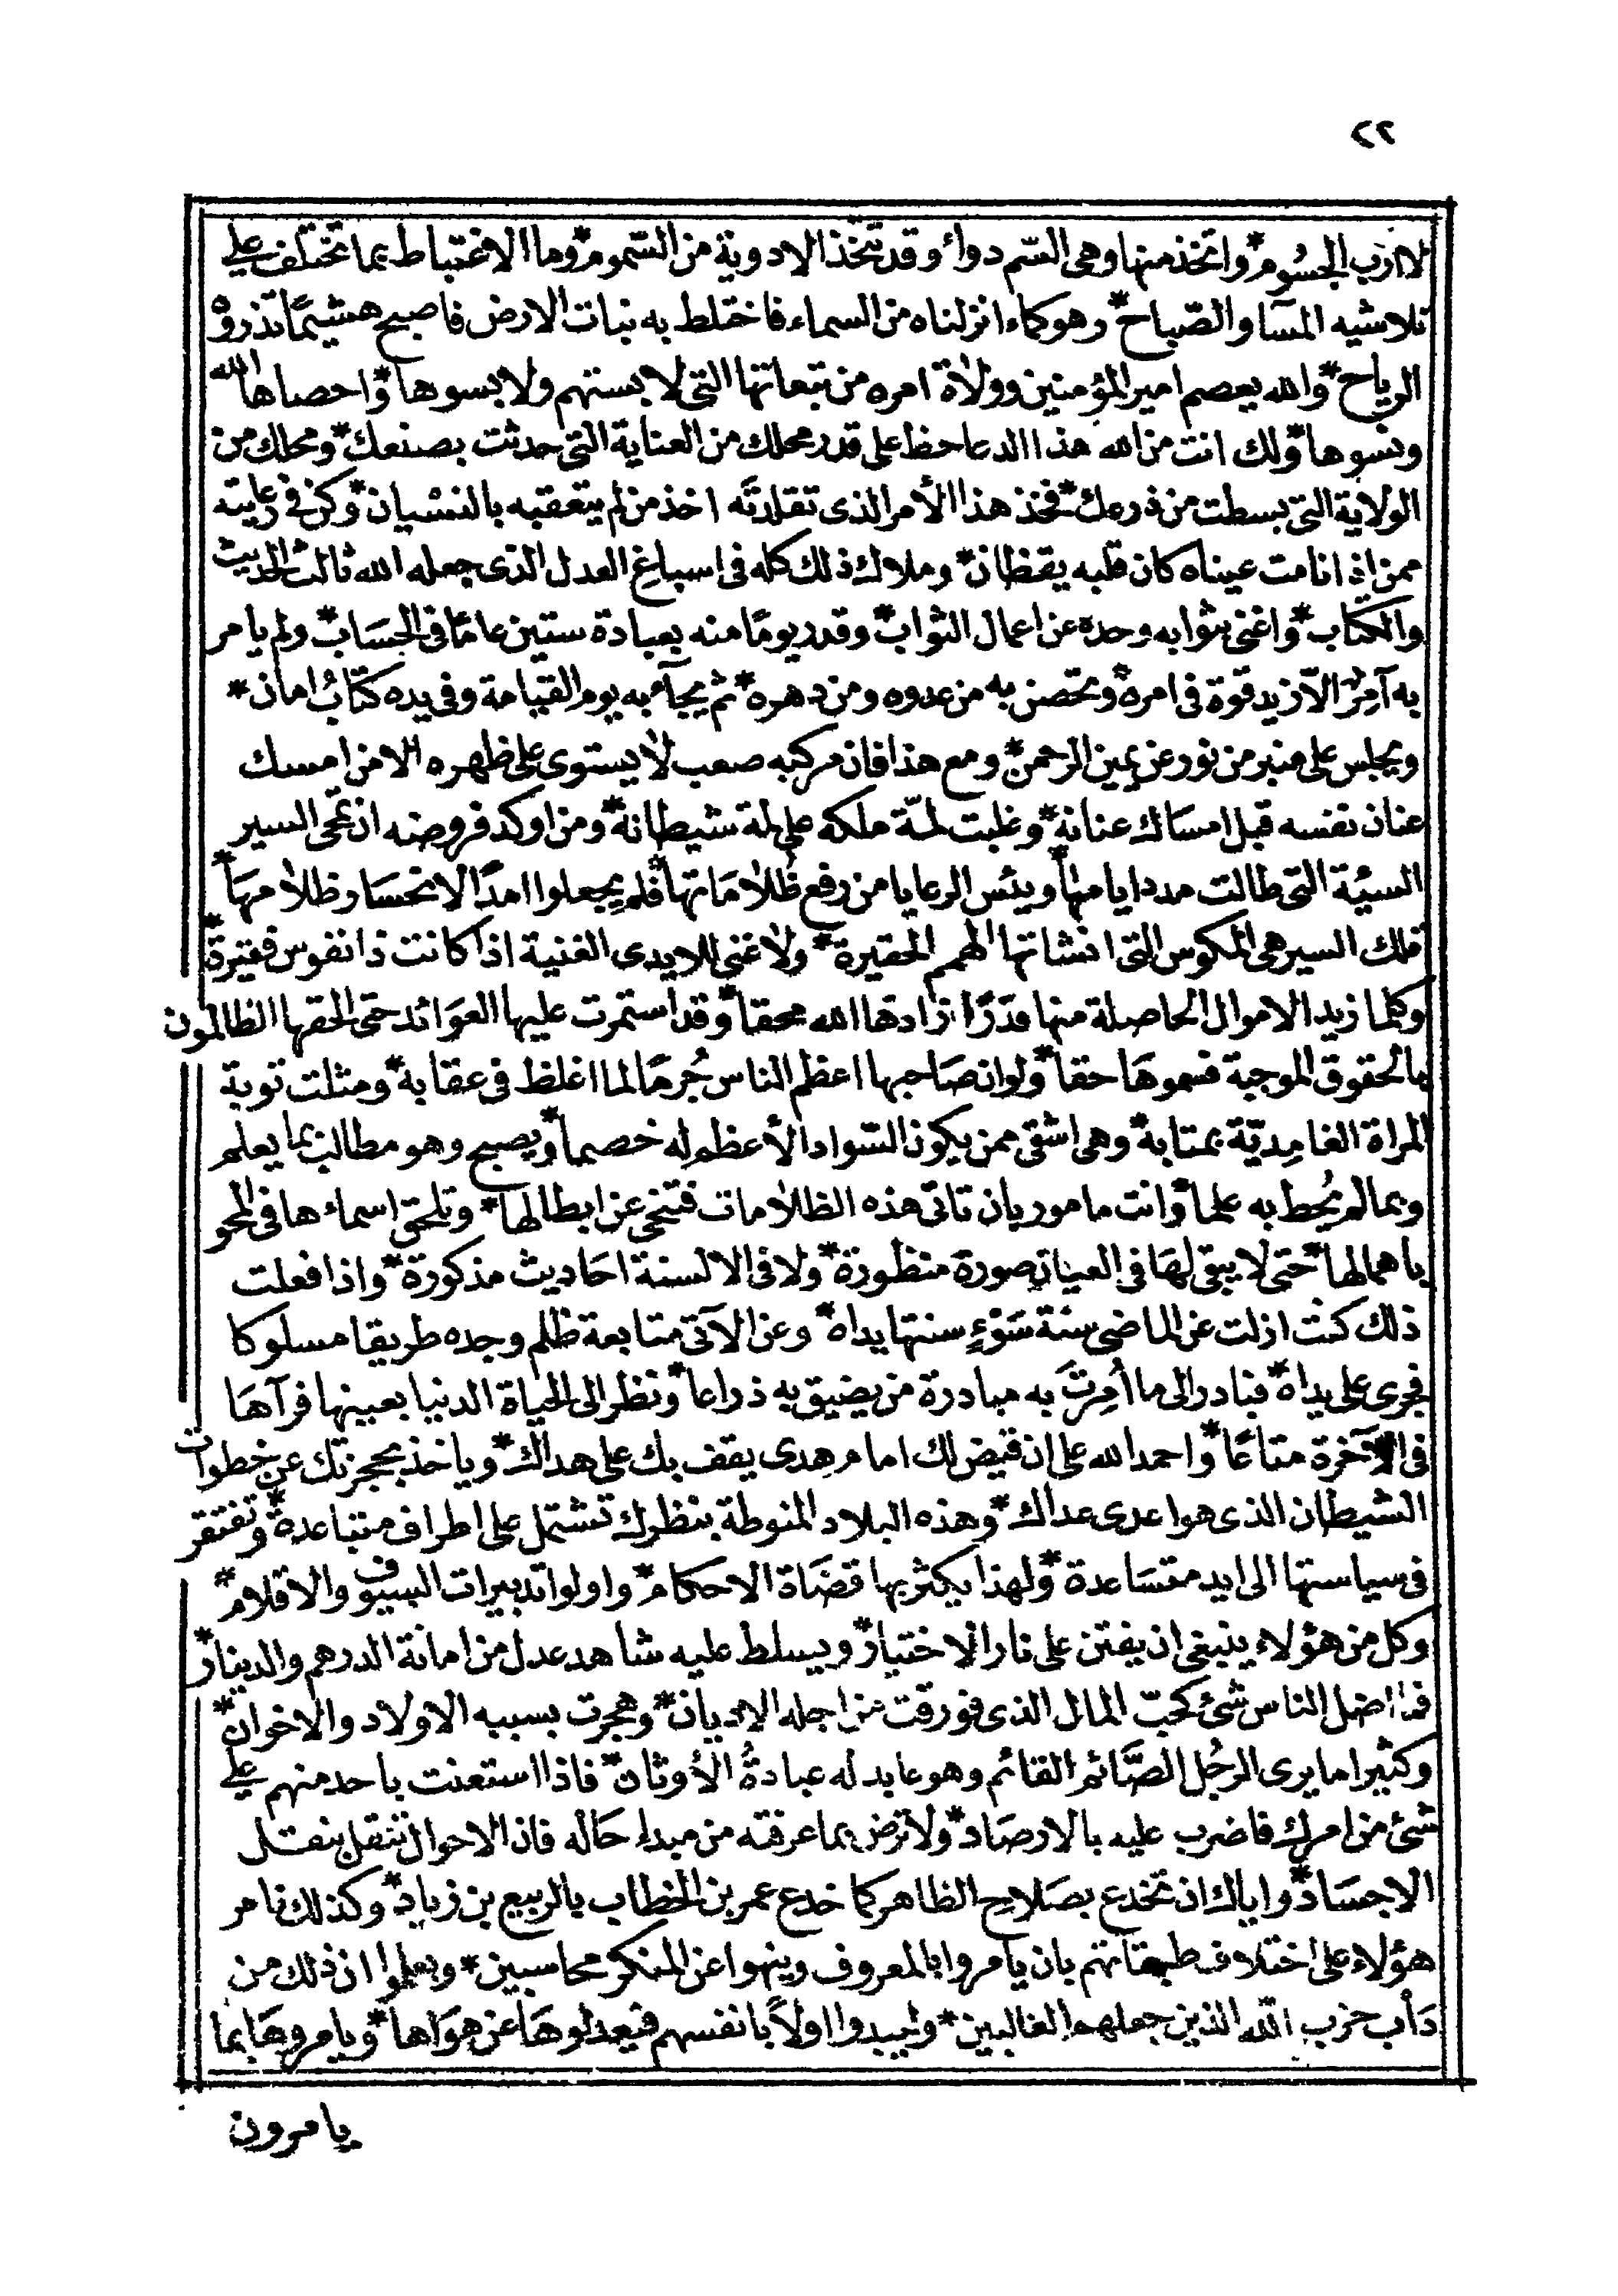 ٢٢
لا ارب الجسُوم * واتخذ منها وهى السّم دواءً وقد تتخذ الادوية من السّموم * وما الاغتباط بما تختلف على
تلاشيه المسآ والصّباح * وهو كماء انزلناه من السماء فاختلط به نبات الارض فاصبح هشيمًا تذروه
الرياح * والله يعصم امير المؤمنين وولاة امره من تبعاتها التى لابستهم ولابسوها * واحصاها الله
ونسوها * ولك انت من الله هذا الدعا حظ على قدر محلك من العناية التى حدثت بصنعك * ومحلك من
الولاية التى بسطت من ذرعك * فخذ هذا الأمر الذى تقلدته اخذ من لم يتعقبه بالنسْيان * وكن فى رعايته
ممن اذا نامت عيناه كان قلبه يقظان * وملاك ذلك كله فى اسباغ العدل الذى جعله الله ثالث الحديث
والكتاب * واغنى بثوابه وحده عن اعمال الثواب * وقدر يومًا منه بعبادة ستين عامًا فى الحسَاب * ولم يامر
به آمِرٌ الّا زيد قوة فى امره * وتحصن به من عدوه ومن دهره * ثم يجآء به يوم القيامة وفى يده كتابُ امان *
ويجلس على منبر من نور عن يمين الرحمن * ومع هذا فان مركبه صعب لا يستوى على ظهره الا من امسك
عنان نفسه قبل امساك عنانه * وغلبت لمّة ملكه على لمة شيطانه * ومن اوكد فروضه ان تمحى السير
السيئة التى طالت مدد ايامها * ويئس الرعايا من رفع ظُلامَاتها * فلم يجعلوا امدًا لانحسار ظلامهَا *
تلك السير هى المكوس التى انشاتها الهمم الحقيرة * ولا غنى للايدى الغنية اذا كانت ذا نفوس فقيرة *
وكلما زيد الاموال الحاصلة منها قدرًا زادها الله محقا * وقد استمرت عليها العوَائد حتى الحقها الظالمون
بالحقوق الموجبة فسموهَا حقا * ولو ان صَاحبها اعظم الناس جُرمًا لما اغلظ فى عقابه * ومثلت توبة
المراة الغامِديّة بمتابه * وهى اشقى ممن يكون السّواد الأعظم له خصما * ويصبح وهو مطالب بما يعلم
وبما لم يُحط به علما * وانت مامور بان تاتى هذه الظلامات فتنحى عن ابطالها * وتلحق اسماءها فى المحو
باهمالها * حتى لا يبقى لهَا فى العيان صورة منظورة * ولا فى الالسنة احَاديث مذكورة * واذا فعلت
ذلك كنت ازلت عن الماضى سنة سَوْءٍ سنتها يداه * وعن الآتى متابعة ظلم وجده طريقا مسلوكا
فجرى على يداه * فبادر الى ما أمِرتَ به مبادرة من يضيق به ذراعا * ونظر الى الحياة الدنيا بعينها فرآهَا
فى الآخرة متاعًا * واحمد الله على ان قيض لك امام هدى يقف بك على هداك * وياخذ بحجزتك عن خطوات
الشيطان الذى هو اعدى عداك * وهذه البلاد المنوطة بنظرك تشتمل على اطراف متباعدة * وتفتقر
فى سياستها الى ايد متسَاعدة * ولهذا يكثر بها قضَاة الاحكام * واولوا تدبيرات السيوف والاقلام *
وكل من هؤلاء ينبغى ان يفتن على نار الاختبار * ويسلط عليه شاهد عدل من امانة الدرهم والدينار *
فما اضل الناس شئ كحبّ المال الذى فورقت من اجله الاديان * وهجرت بسببه الاولاد والاخوان *
وكثيرا ما يرى الرجُل الصَّائم القائم وهو عابد له عبادةُ الأوثان * فاذا استعنت باحد منهم على
شئ من امرك فاضرب عليه بالارصَاد * ولا ترض بما عرفته من مبداء حَاله فان الاحوال تتنقل بنقل
الاجسَاد * واياك ان تخدع بصَلاح الظاهر كما خدع عمر بن الخطاب بالربيع بن زياد * وكذلك نامر
هؤلاء على اختلاف طبقاتهم بان يامروا بالمعروف وينهوا عن المنكر محاسبين * ويعلموا ان ذلك من
دَأب حزب الله الذين جعلهم الغالبين * وليبدوا اولًا بانفسهم فيعدلوهَا عن هوَاها * ويامروهَا بما
يامرون